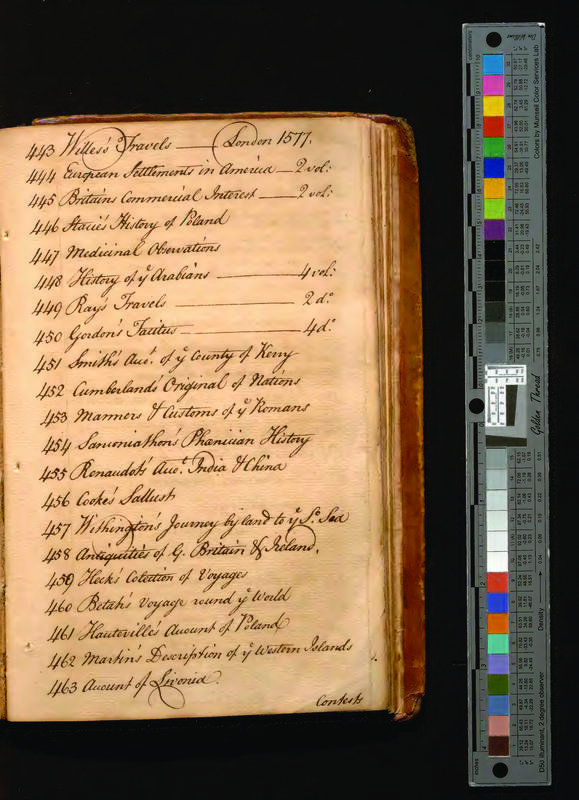 443 Willes's Travels — London 1577.
444 European Settlements in America — 2 vol:
445 Britains Commercial Interest — 2 vol:
446 Stacie's History of Poland
447 Medicinal Obsevations
448 History of yͤ Arabians — 4 vol:
449 Ray's Travels — 2 dº
450 Gordon's Tacitus — 4 dº
451 Smith's Accᵗ. of yͤ County of Kerry
452 Cumberland's Original of Nations
453 Manners & Customs of yͤ Romans
454 Sanconiathon's Phœnician History
455 Renaudot's Accᵗ. India & China
456 Cooke's Sallust
457 Withington's Journey by land to yͤ Sº. Sea
458 Antiquities of G. Britain & Ireland.
459 Heck's Colection of Voyages
460 Betagh's Voyage round yͤ World
461 Hauteville's Account of Poland
462 Martin's Description of yͤ Western Islands
463 Account of Livonia.
Contests
Colors by Munsell Color Services Lab
Golden Thread
Density
D50 Illuminant, 2 degree observer
inches
centimeters